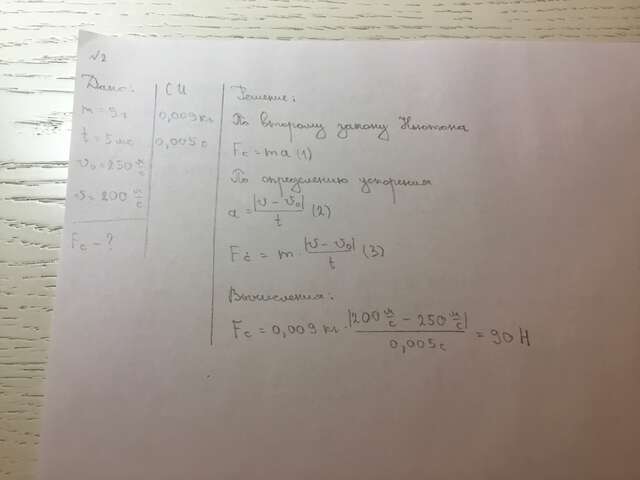 №2
Дано:
m = 9г
t = 5мс
v₀ = 250 м/с
v = 200 м/с
Fc - ?
СИ
0,009 кг
0,005 с
Решение:
По второму закону Ньютона
Fc = ma (1)
По определению ускорения
a = |v - v₀|/t (2)
Fc = m · |v - v₀|/t (3)
Вычисления:
Fc = 0,009 кг · |200 м/с - 250 м/с|/0,005с = 90 Н